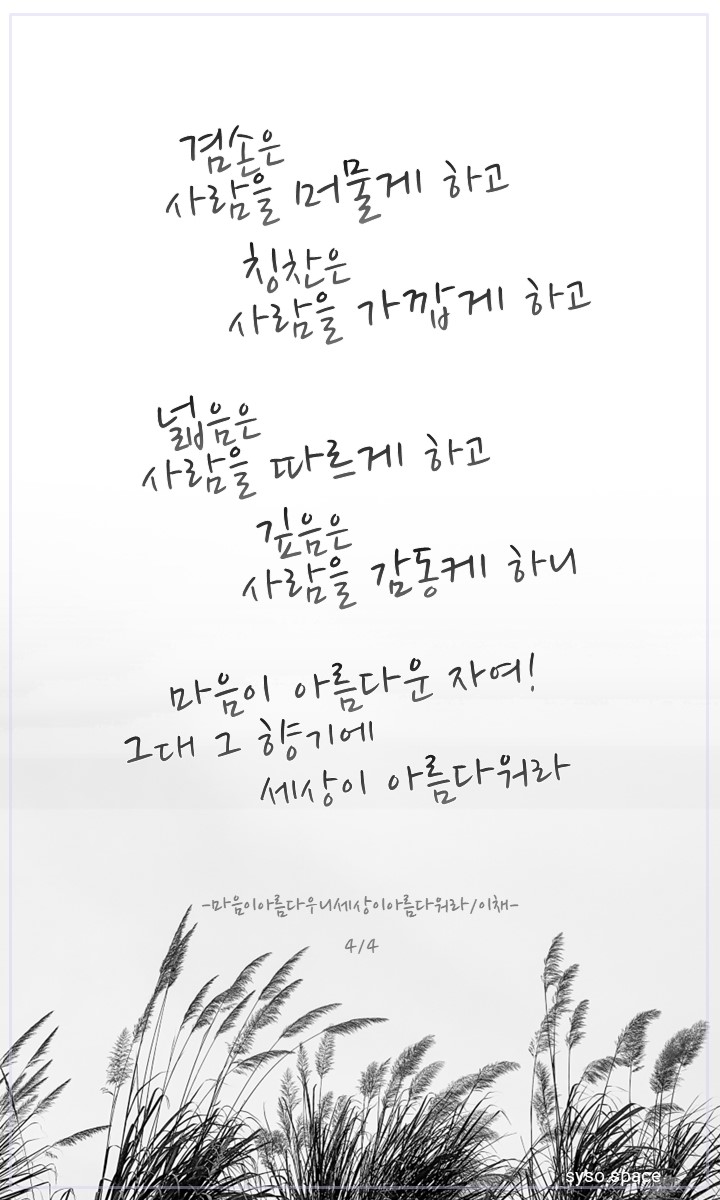 겸손은
사람을 머물게 하고
칭찬은
사람을 가깝게 하고
넓음은
사람을 따르게 하고
깊음은
사람을 감동케 하니
마음이 아름다운 자여!
그대 그 향기에
세상이 아름다워라
-마음이아름다우니세상이아름다워라/이채-
4/4
syso.space